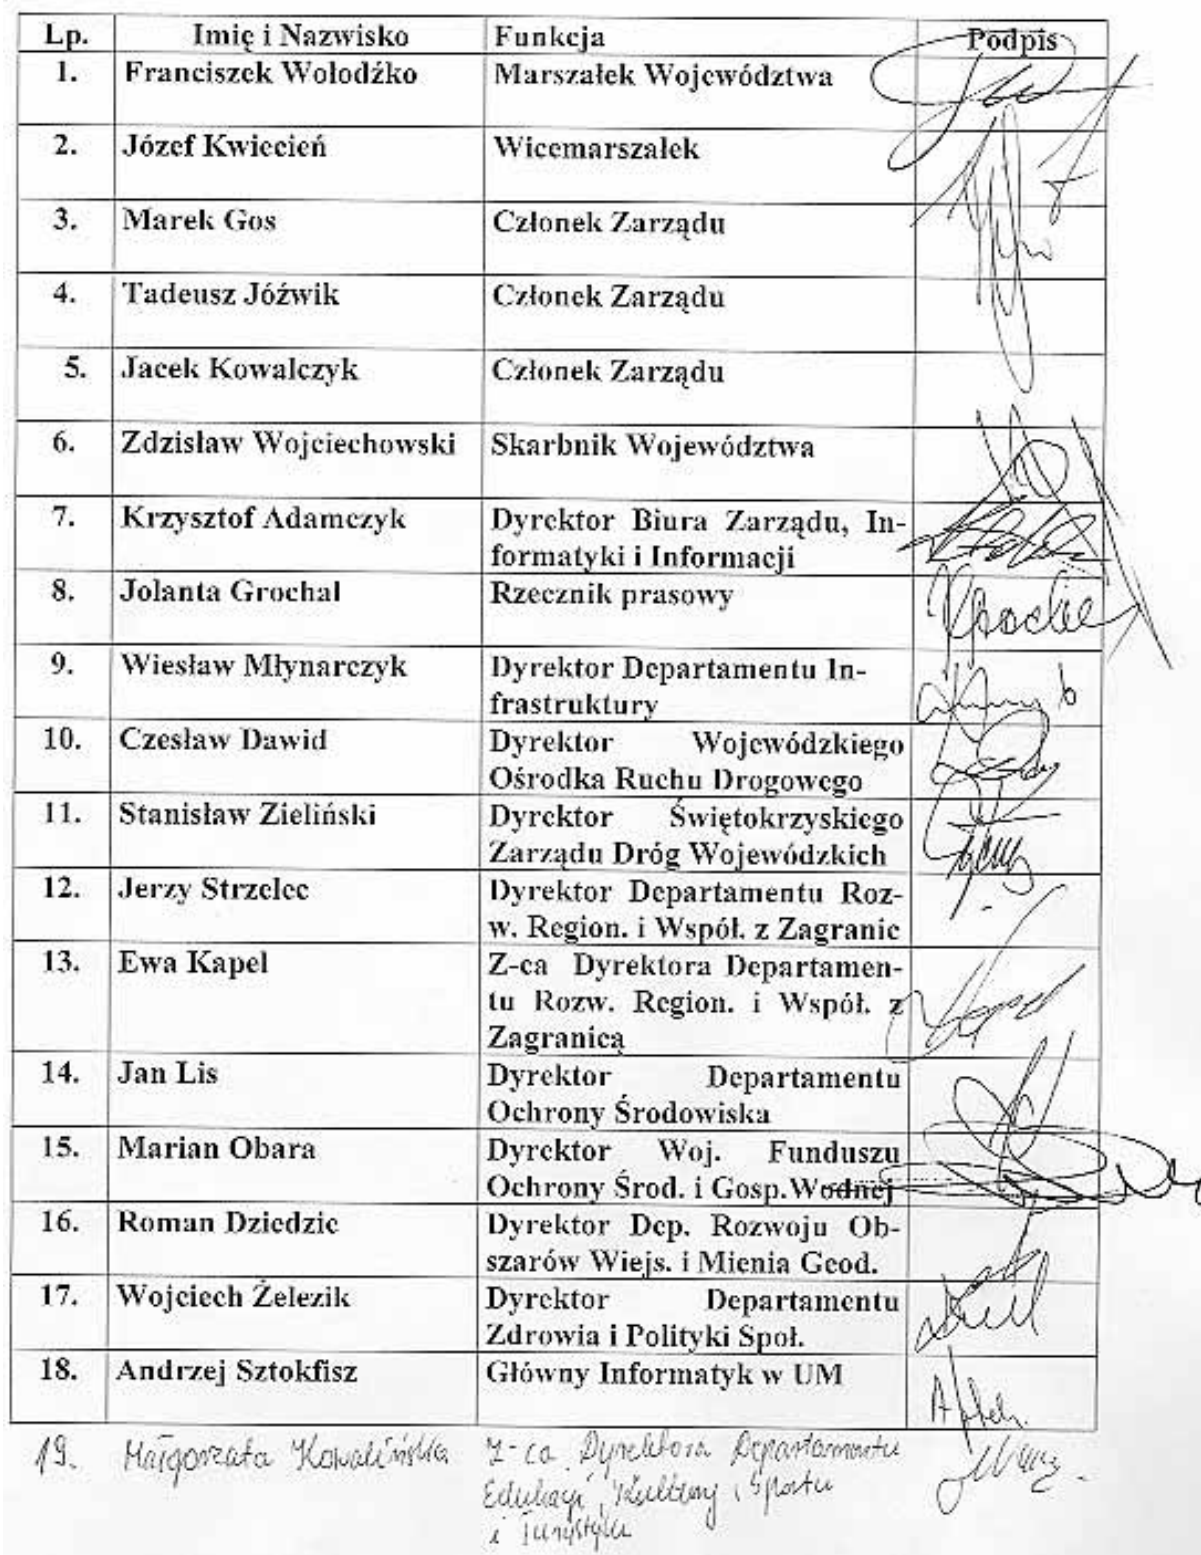 Lp. Imię i Nazwisko Funkcja Podpis
1. Franciszek Wołodźko Marszałek Województwa
2. Józef Kwiecień Wicemarszałek
3. Marek Gos Członek Zarządu
4. Tadeusz Jóźwik Członek Zarządu
5. Jacek Kowalczyk Członek Zarządu
6. Zdzisław Wojciechowski Skarbnik Województwa
7. Krzysztof Adamczyk Dyrektor Biura Zarządu, In-
formatyki i Informacji
8. Jolanta Grochal Rzecznik prasowy
9. Wiesław Młynarczyk Dyrektor Departamentu In-
frastruktury
10. Czesław Dawid Dyrektor Wojewódzkiego
Ośrodka Ruchu Drogowego
11. Stanisław Zieliński Dyrektor Świętokrzyskiego
Zarządu Dróg Wojewódzkich
12. Jerzy Strzelec Dyrektor Departamentu Roz-
w. Region. i Współ. z Zagranic
13. Ewa Kapel Z-ca Dyrektora Departamen-
tu Rozw. Region. i Współ. z
Zagranicą
14. Jan Lis Dyrektor Departamentu
Ochrony Środowiska
15. Marian Obara Dyrektor Woj. Funduszu
Ochrony Środ. i Gosp.Wodnej
16. Roman Dziedzic Dyrektor Dep. Rozwoju Ob-
szarów Wiejs. i Mienia Geod.
17. Wojciech Żelezik Dyrektor Departamentu
Zdrowia i Polityki Społ.
18. Andrzej Sztokfisz Główny Informatyk w UM
19. Małgorzata Kowalińska Z-ca Dyrektora Departamentu
Edukacji, Kultury, Sportu
i Turystyki